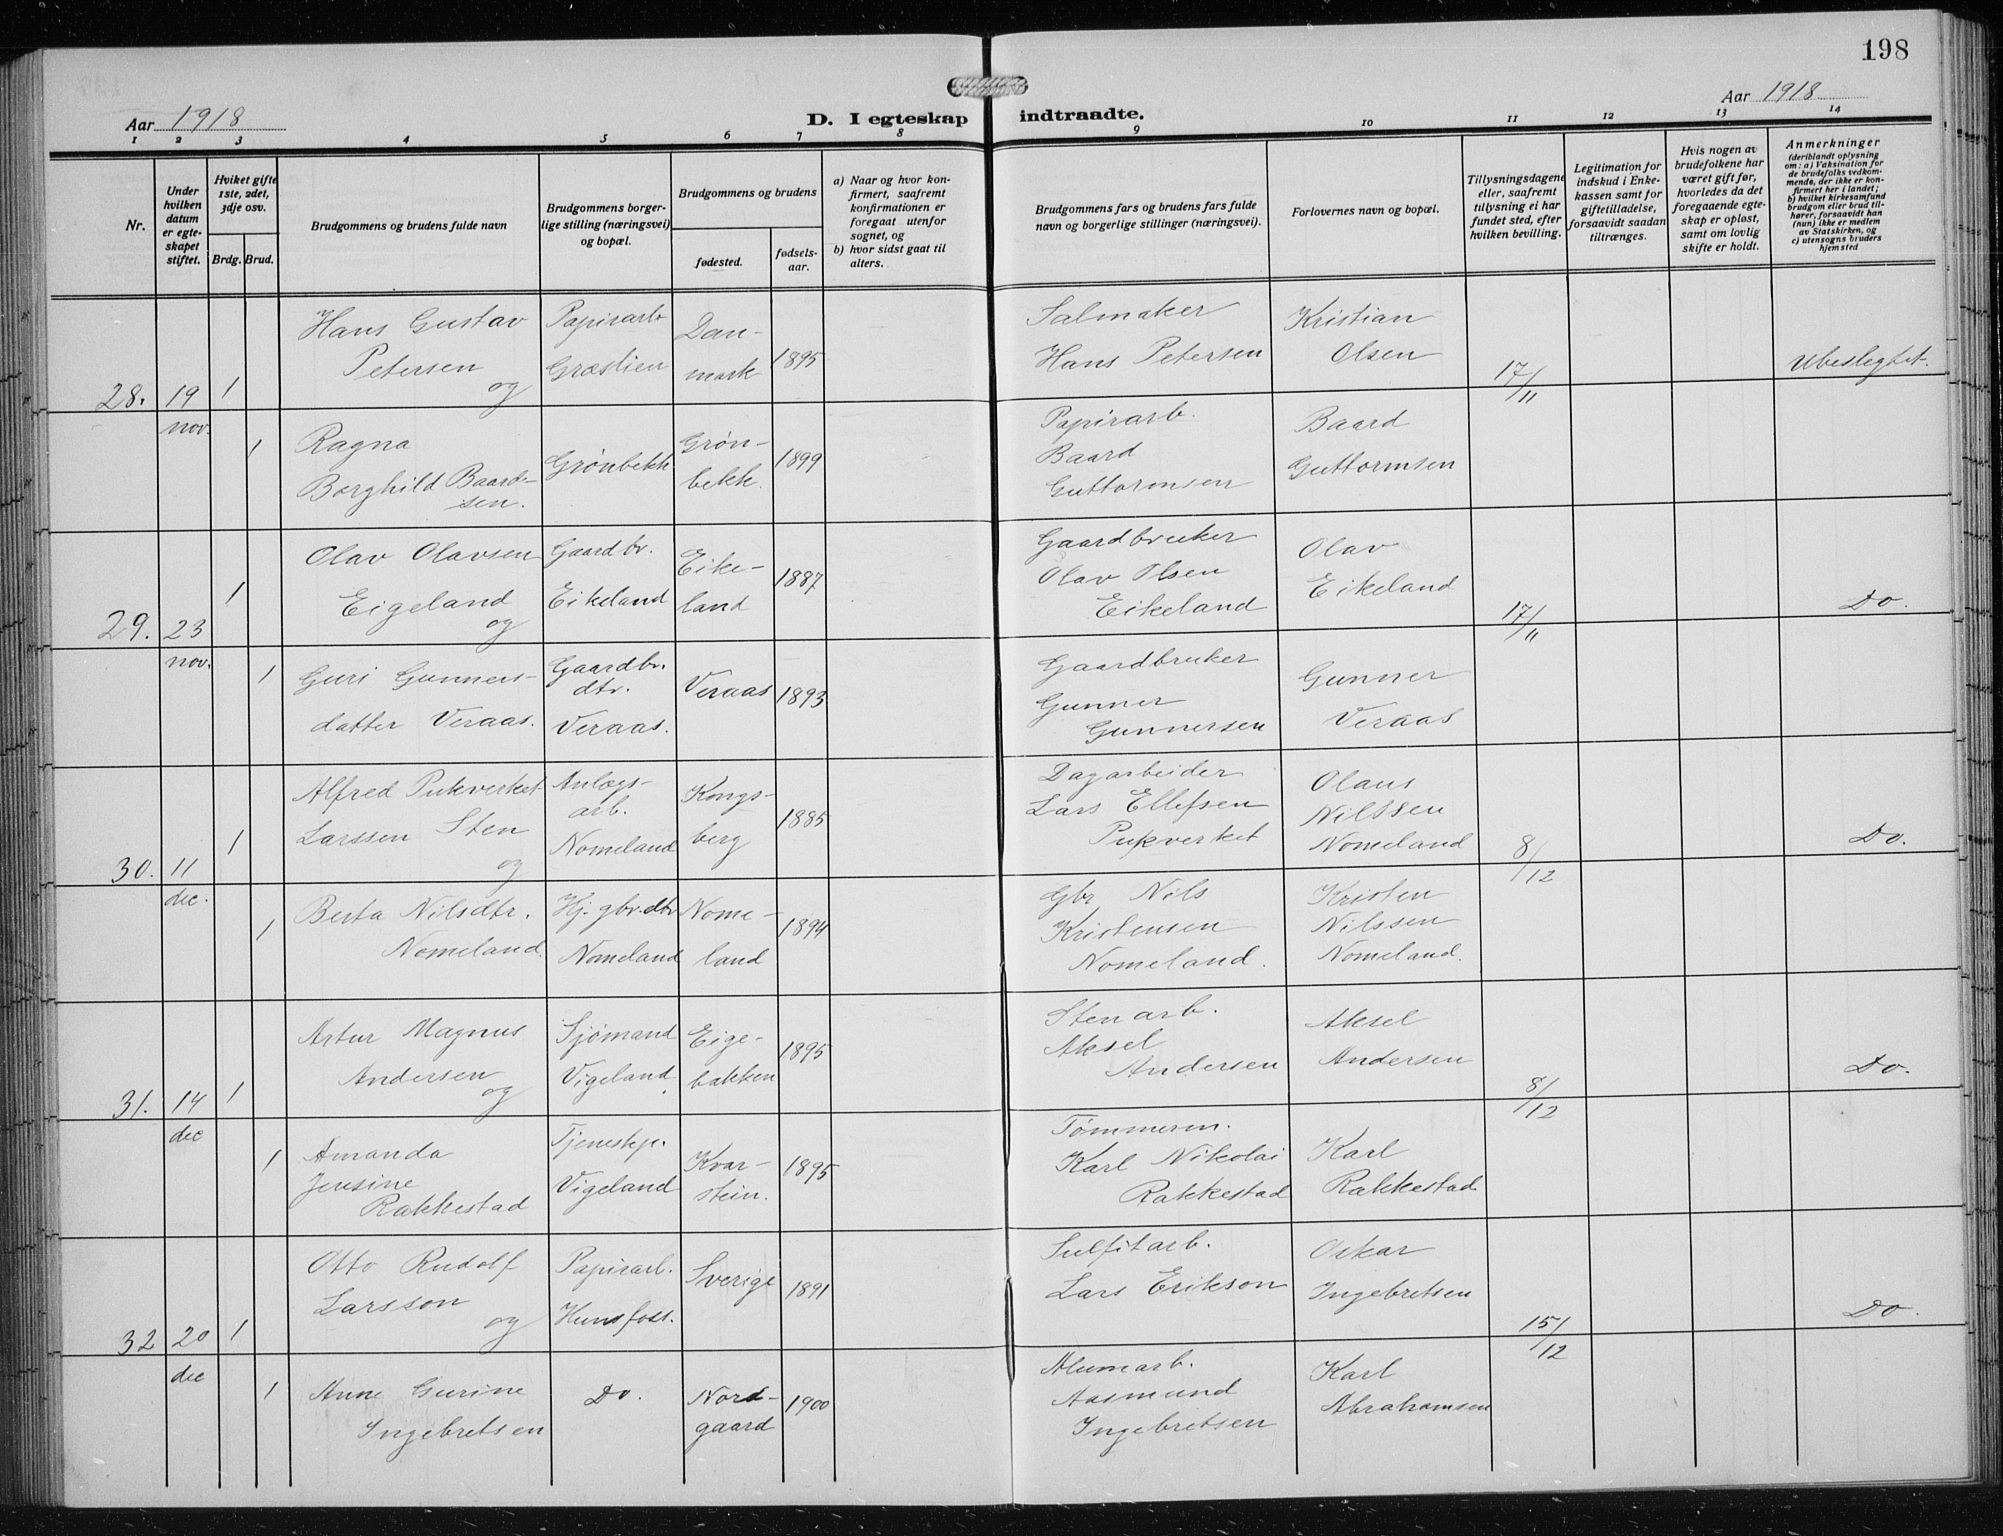 198
Aar 1918
D. I egteskap indtraadte.
Aar 1918
1 2 3 4 5 6 7 8 9 10 11 12 13 14
Nr.
Under hvilken datum er egteskapet stiftet.
Hviket gifte 1ste, 2det, 3dje osv.
Brdg. Brud.
Brudgommens og brudens fulde navn
Brudgommens borgerlige stilling (næringsvei) og bopæl.
Brudgommens og brudens
fødested.
fødselsaar.
a) Naar og hvor konfirmert, saafremt konfirmationen er foregaat utenfor sognet, og
b) hvor sidst gaat til alters.
Brudgommens fars og brudens fars fulde navn og borgerlige stillinger (næringsvei).
Forlovernes navn og bopæl.
Tillysningsdagene eller, saafremt tillysning ei har fundet sted, efter hvilken bevilling.
Legitimation for indskud i Enkekassen samt for giftetilladelse, forsaavidt saadan tiltrænges.
Hvis nogen av brudefolkene har været gift før, hvorledes da det foregaaende egteskap er opløst, samt om lovlig skifte er holdt.
Anmerkninger
(deriblandt oplysning om: a) Vaksination for de brudefolks vedkommende, der ikke er konfirmert her i landet;
b) hvilket kirkesamfund brudgom eller brud tilhører, forsaavidt han (hun) ikke er medlem av Statskirken, og
c) utensogns bruders hjemsted
28. 19 nov. 1
Hans Gustav
Petersen
og
Papirarb.
Græstien
Danmark
1895
Salmaker
Hans Petersen
Kristian
Olsen
17/11
Ubeslegtet.
1
Ragna
Borghild Baardsen.
Grønbekk
Grønbekk.
1899
Papirarb.
Baard
Guttormsen
Baard
Guttormsen
29. 23 nov. 1
Olav Olavsen
Eigeland
og
Gaardbr.
Eikeland
Eikeland
1887
Gaardbruker
Olav Olsen
Eikeland
Olav
Eikeland
17/11
Do.
1
Guri Gunnersdatter Veraas.
Gaardbr.
dtr.
Veraas.
Veraas
1893
Gaardbruker
Gunner
Gunnersen
Gunner
Veraas
30. 11 dec. 1
Alfred Pukverket
Larssen Sten
og
Anlægsarb.
Nomeland
Kongsberg
1885
Dagarbeider
Lars Ellefsen
Pukverket
Olaus
Nilssen
Nomeland
8/12
Do.
1
Berta Nilsdtr.
Nomeland.
Hj. gbr. dtr
Nomeland
Nomeland
1894
Gbr Nils
Kristensen
Nomeland.
Kristen
Nilssen
Nomeland.
31. 14 dec 1
Artur Magnus
Andersen
og
Sjømand
Vigeland.
Eigebakken
1895
Stenarb.
Aksel
Andersen
Aksel
Andersen
8/12
Do.
1
Amanda
Jensine
Rakkestad
Tjenestp.
Vigeland
Kvarstein.
1895
Tømmerm.
Karl Nikolai
Rakkestad
Karl
Rakkestad
32 20 dec 1
Otto Rudolf
Larsson
og
Papirarb.
Hunsfoss.
Sverige
1891
Sulfitarb.
Lars Erikson
Oskar
Ingebretsen
15/12
Do.
1
Anne Gurine
Ingebretsen
Do.
Nordgaard
1900
Alumarb.
Aasmund
Ingebretsen
Karl
Abrahamsen